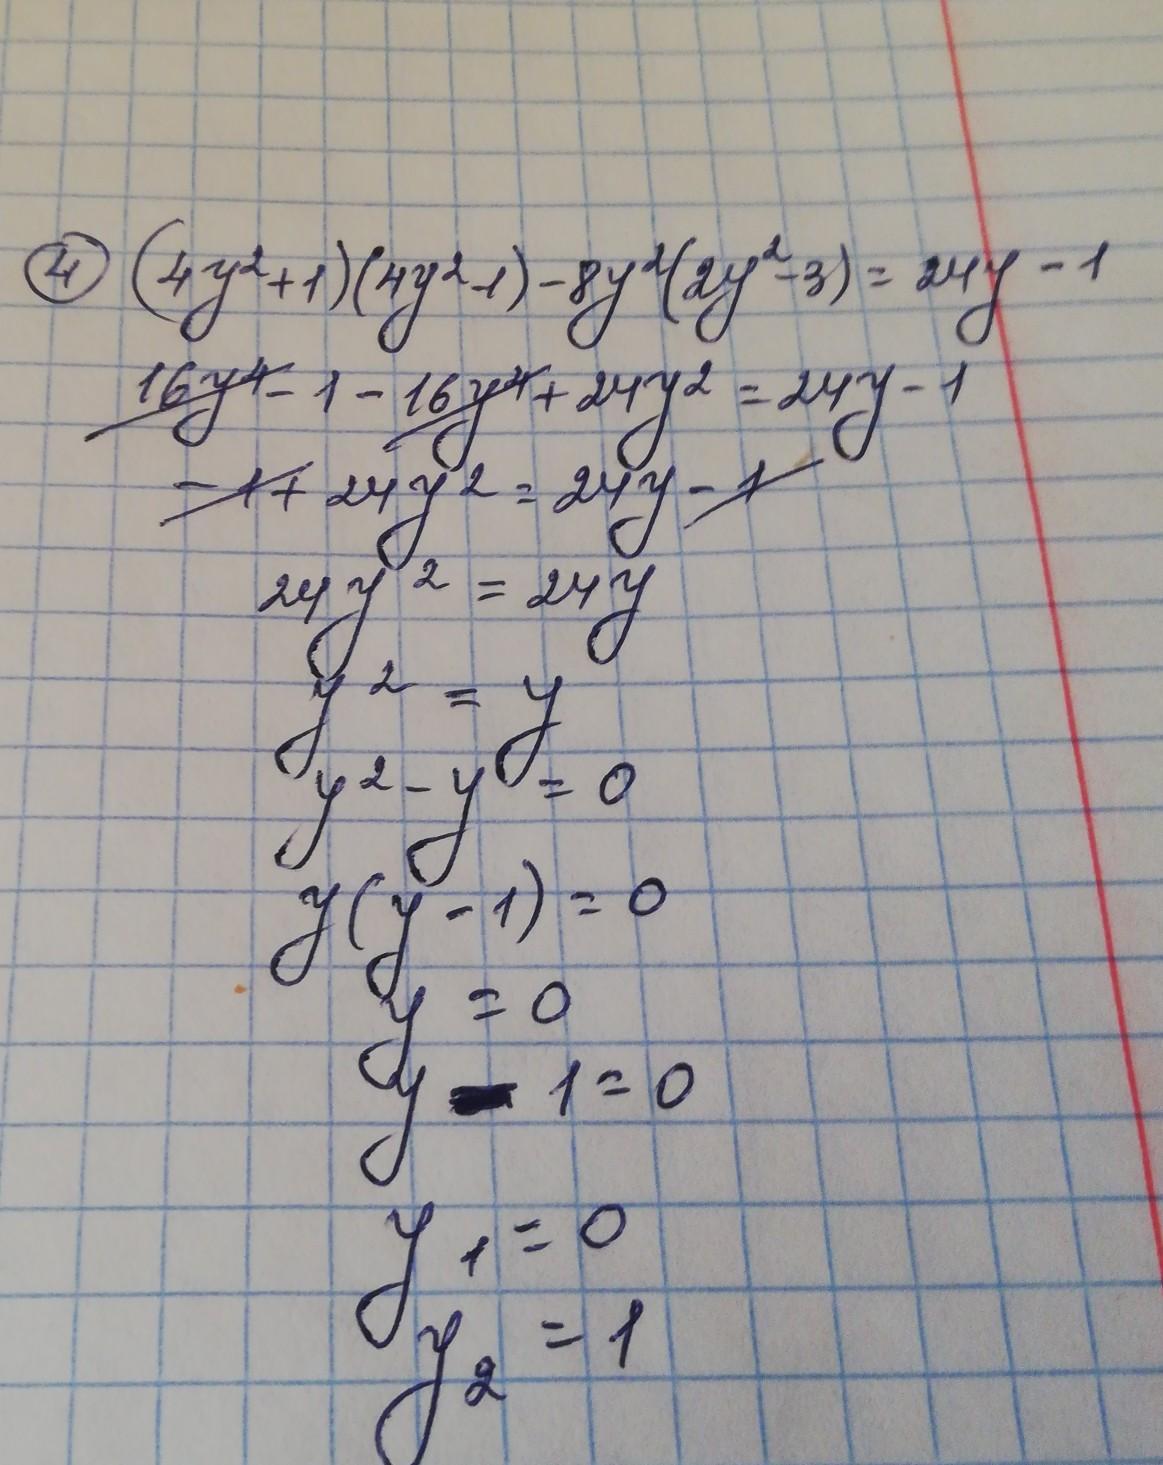 ④ (4y²+1)(4y²-1)-8y²(2y²-3)=24y-1
16y⁴-1-16y⁴+24y²=24y-1
-1+24y²=24y-1
24y²=24y
y²=y
y²-y=0
y(y-1)=0
y=0
y-1=0
y₁=0
y₂=1